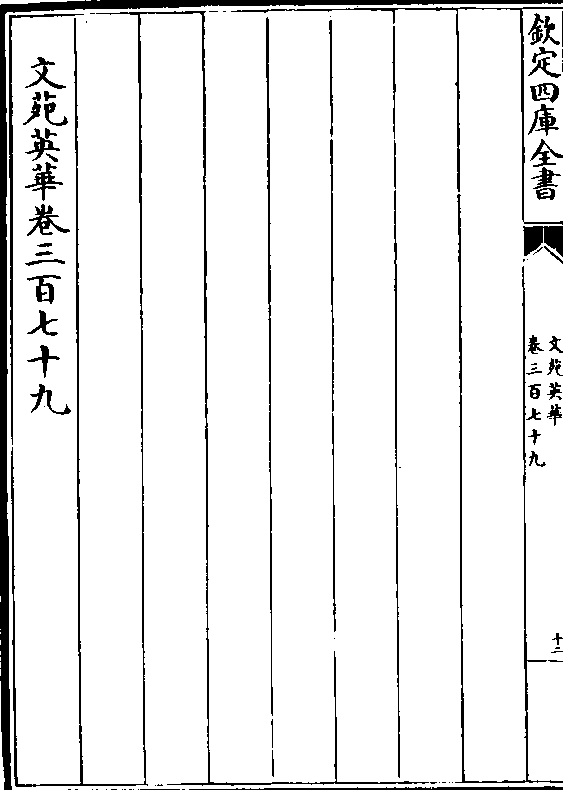 欽定四庫全書
文苑英華
卷三百七十九
十二
文苑英華卷三百七十九